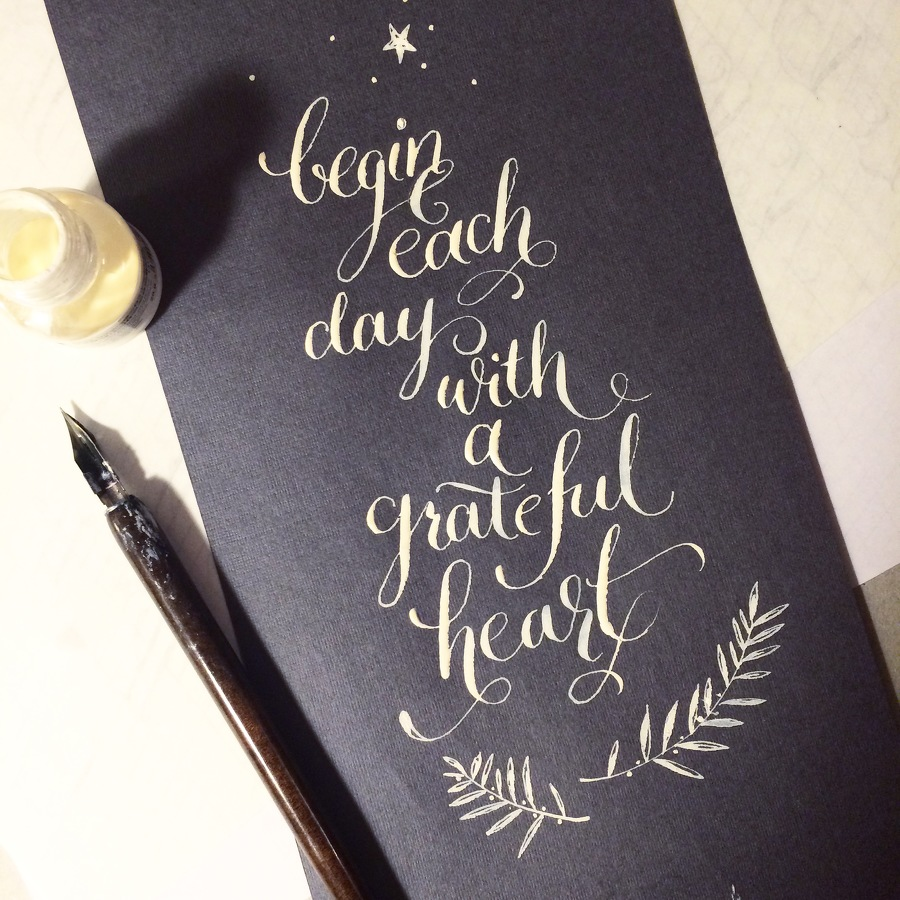 begin
each
day
with
a
grateful
heart